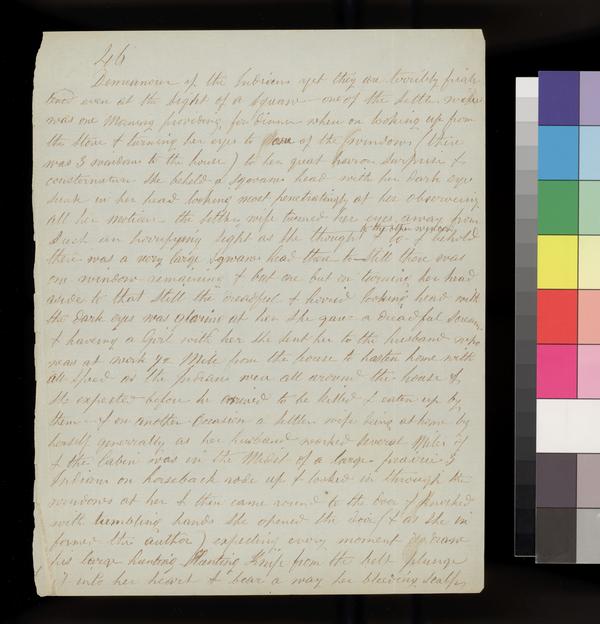 46
Demeanour of the Indians yet they are terribly frigh
tened even at the Sight of a Squaw - one of the Settler wife
was one Morning providing for dinner when on looking up from
the Stove & turning her eyes to one of the windows (there
was 3 windows to the house) to her great horror Surprise &
consternation She beheld a Sqwaws head with her dark eyes
sunk in her head looking most penetratingly at her observing
all her motions the settlers wife turned her eyes away from
Such an horrifying sight as She thought & lo & behold
to the other window
there was a very large Sqwaws head there to - Still there was
one window remaining & but one but on turning her head
aside to that Still the dreadful & horrid looking head with
the dark eyes was glaring at her She gave a dreadful Scream
& having a Girl with her She Sent her to the husband who
was at work ½ Mile from the house to hasten home with
all Speed as the Indians were all around the house &
She expected before he arrived to be killed & eaten up by
them - & on another Occasion a Settlers wife being at home by
herself generally as her husband worked Several Miles off
& the Cabin was in the Midst of a large prairie 3
Indians on horseback rode up & looked in through the
windows at her & then came round to the door & knocked
with trembling hands She opened the door (& as She in
formed the author) expecting every moment
his large hunting Knife from the belt plunge
it into her heart & bear a way her bleeding Scalp